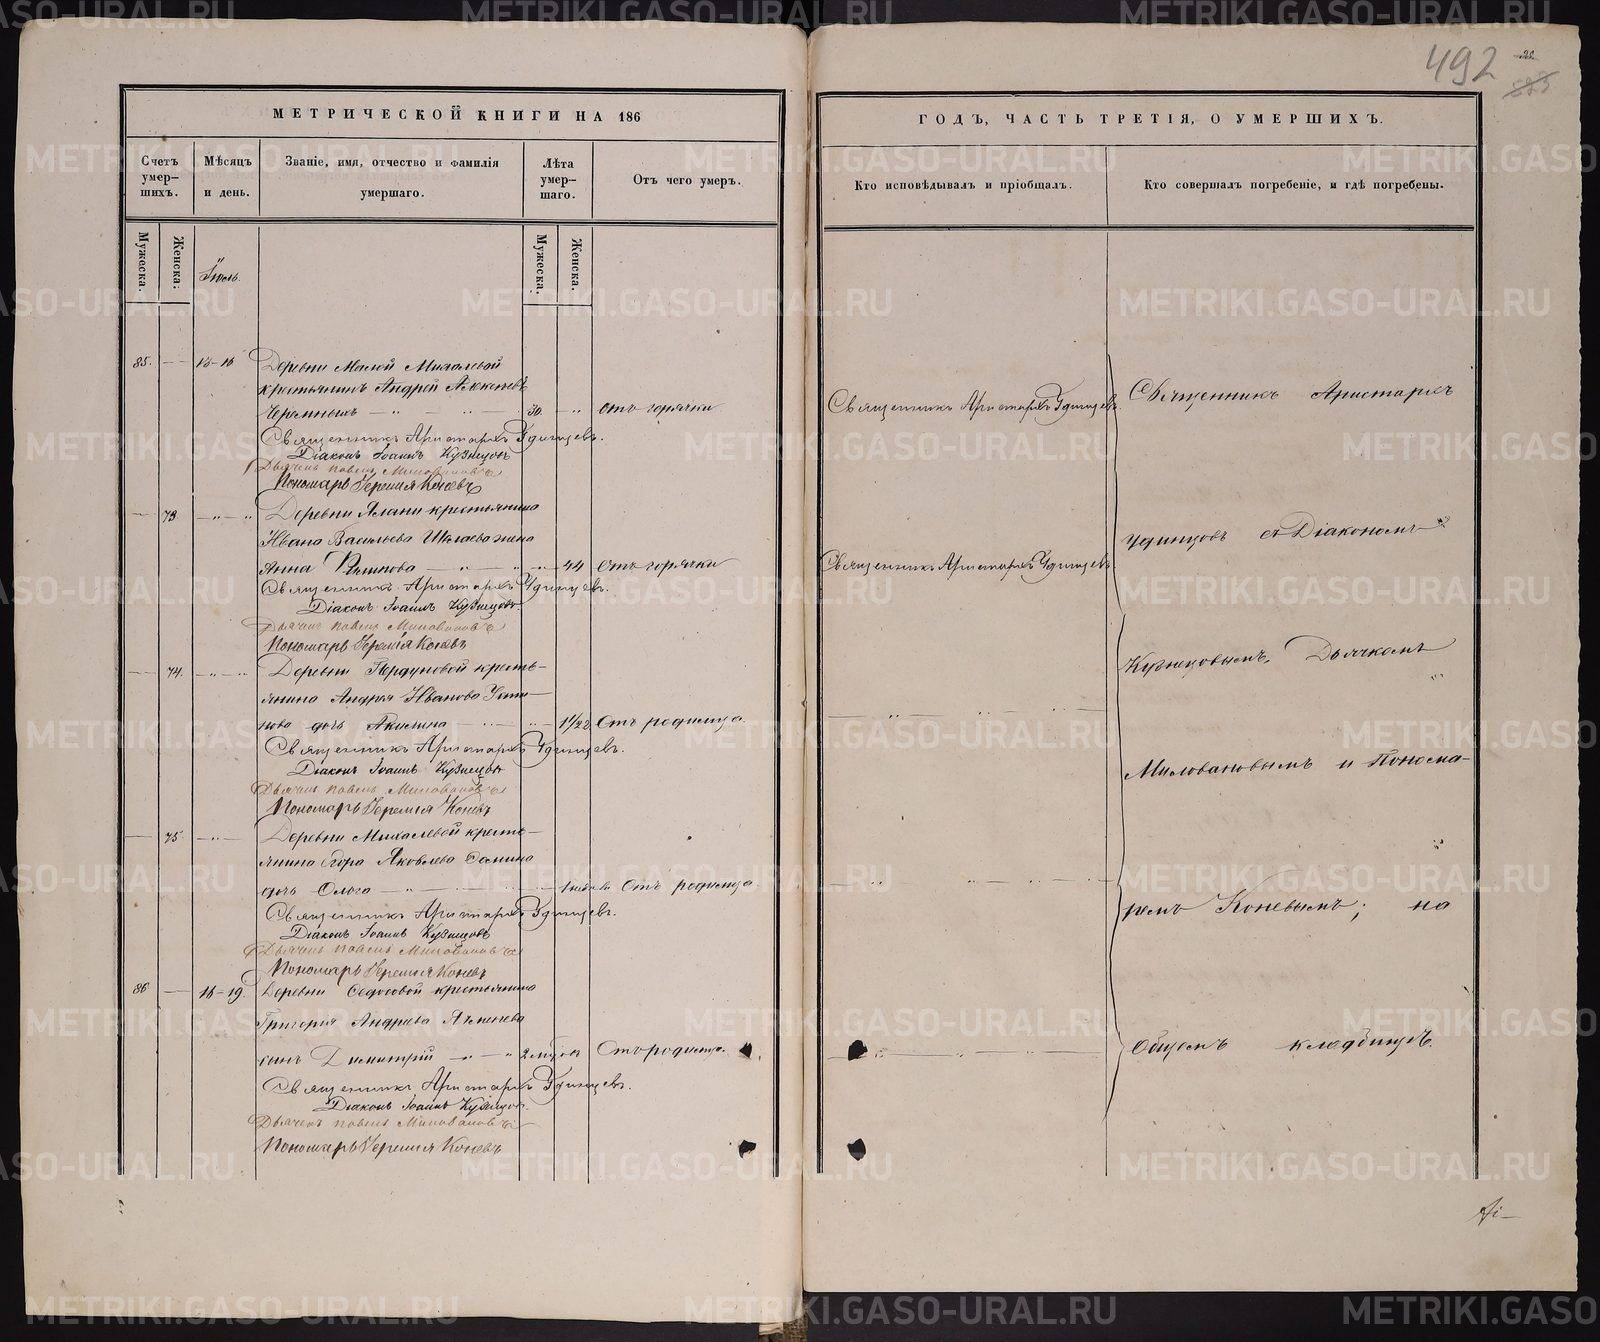 492
МЕТРИЧЕСКОЙ КНИГИ НА 186
Счетъ умер-шихъ.
Мѣсяцъ и день.
Званіе, имя, отчество и фамилія умершаго.
Лѣта умер-шаго.
Отъ чего умеръ.
Мужеска.
Женска.
Мужеска.
Женска.
Іюль.
85. 13-16 Деревни Малой Михалевой
крестьянинъ Андрей Алексѣевъ
Черемныхъ 30 отъ горячки
Священникъ Аристархъ Удинцевъ.
Діаконъ Іоаннъ Кузнецовъ
Дьячекъ Павелъ Миловановъ
Пономарь Іеремія Коневъ
73. Деревни Алани крестьянина
Ивана Васильева жена
Анна 44 Отъ горячки
Священникъ Аристархъ Удинцевъ.
Діаконъ Іоаннъ Кузнецовъ.
Дьячекъ Павелъ Миловановъ
Пономарь Іеремія Коневъ
74. Деревни крестья-
нина Андрея Иванова Усти-
нова дочь Акилина 1 1/22 Отъ родимца.
Священникъ Аристархъ Удинцевъ.
Діаконъ Іоаннъ Кузнецовъ
Дьячекъ Павелъ Миловановъ
Пономарь Іеремія Коневъ
75. Деревни Михалевой кресть-
янина Егора Яковлева Демина
дочь Ольга Отъ родимца.
Священникъ Аристархъ Удинцевъ.
Діаконъ Іоаннъ Кузнецовъ
Дьячекъ Павелъ Миловановъ
Пономарь Іеремія Коневъ
86 16-19. Деревни Федосовой крестьянина
Григорія Андреева Ячменева
сынъ Димитрій Отъ родимца.
Священникъ Аристархъ Удинцевъ.
Діаконъ Іоаннъ Кузнецовъ.
Дьячекъ Павелъ Миловановъ
Пономарь Іеремія Коневъ
ГОДЪ, ЧАСТЬ ТРЕТІЯ, О УМЕРШИХЪ.
Кто исповѣдывалъ и пріобщалъ.
Кто совершалъ погребеніе, и гдѣ погребены.
Священникъ Аристархъ Удинцевъ.
Священникъ Аристархъ Удинцевъ
Священникъ Аристархъ
Удинцовъ съ Діакономъ
Кузнецовымъ, Дьячкомъ
Миловановымъ и Понома-
ремъ Коневымъ; на
Общемъ кладбищѣ.
METRIKI.GASO-URAL.RU